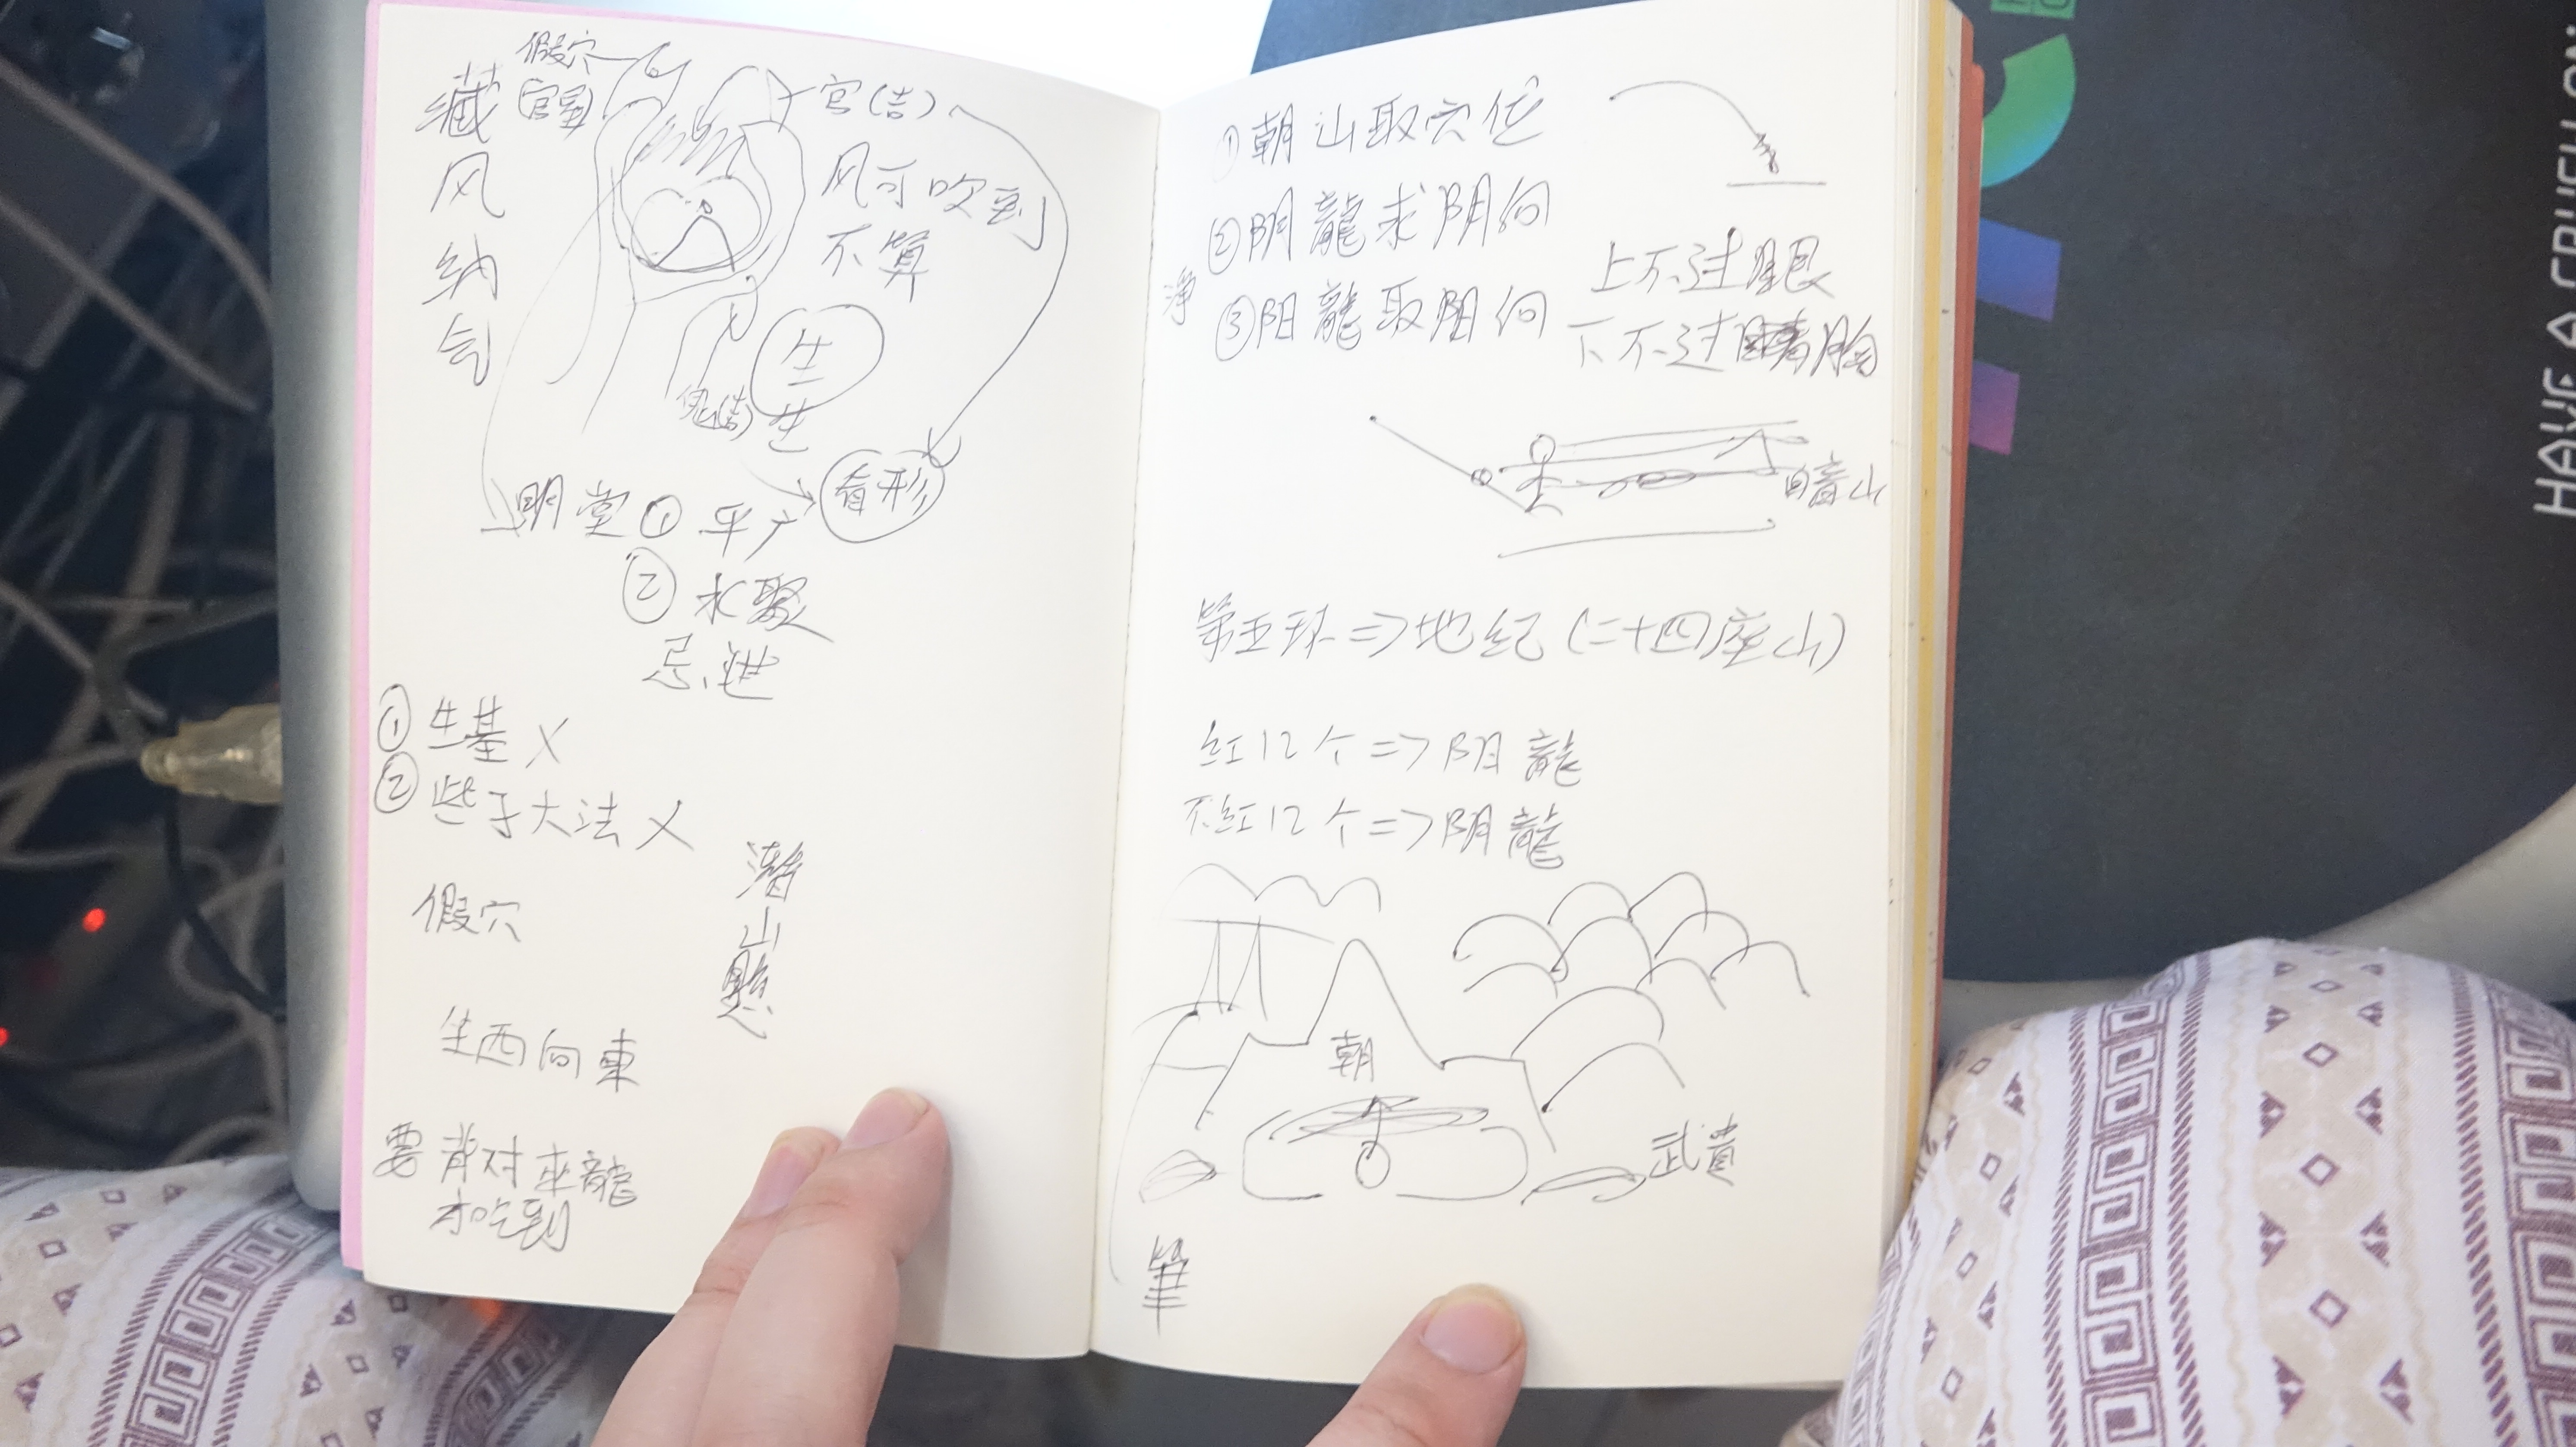 藏风纳气
假穴
官星
官(吉)
风可吹到
不算
生
生
有形
明堂① 平广
② 水聚
忌泄
① 生基 X
② 些子大法 X
假穴
潜山
生西向東
要背对来龍
才吃到
①朝山取穴位
②阴龍求阴向
净
③阳龍取阳向
上不过眼
下不过胸
暗山
第五环=>地纪(二十四座山)
紅12个=>阴龍
不紅12个=>阴龍
朝
武貴
筆
HAVE A